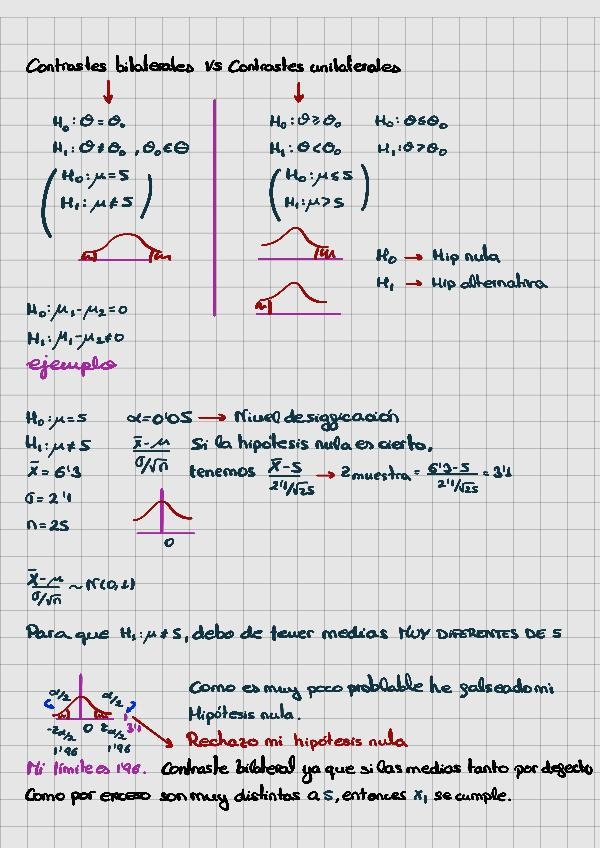 Contrastes bilaterales vs Contrastes unilaterales
H₀: θ = θ₀
H₁: θ ≠ θ₀, θ₀ ∈ Θ
(H₀: μ = 5
H₁: μ ≠ 5)
H₀: θ ≥ θ₀ H₀: θ ≤ θ₀
H₁: θ < θ₀ H₁: θ > θ₀
(H₀: μ ≤ 5
H₁: μ > 5)
H₀ → Hip nula
H₁ → Hip alternativa
H₀: μ₁ - μ₂ = 0
H₁: μ₁ - μ₂ ≠ 0
ejemplo
H₀: μ = 5 α = 0'05 → Nivel de siggicación
H₁: μ ≠ 5 (x̄ - μ)/(σ/√n) Si la hipótesis nula es cierto,
x̄ = 6'3 tenemos (x̄ - 5)/(2'1/√25) → z muestra = (6'3 - 5)/(2'1/√25) = 3'1
σ = 2'1
n = 25
0
(x̄ - μ)/(σ/√n) ~ N(0,1)
Para que H₁: μ ≠ 5, debo de tener medias MUY DIFERENTES DE 5
α/2 α/2
-zα/2 0 zα/2 3'1
1'96 1'96
Como es muy poco problable he galseado mi
Hipótesis nula.
Rechazo mi hipótesis nula
Mi límite es 1'96. Contraste bilateral ya que si las medias tanto por defecto
Como por exceso son muy distintos a 5, entonces x₁ se cumple.